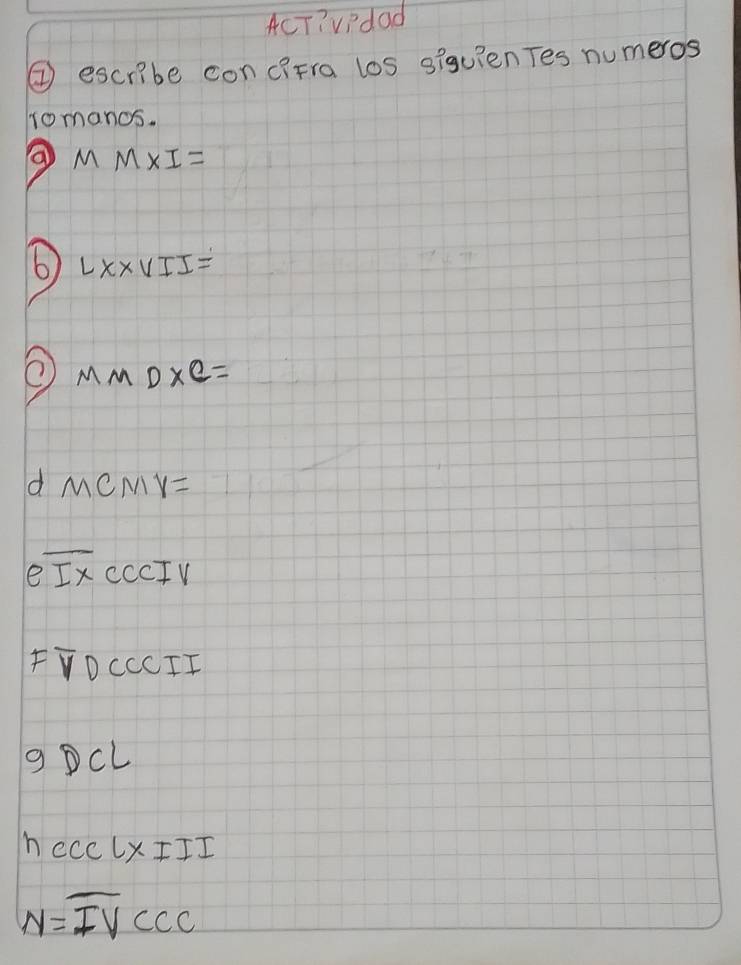 ACTividad
① escribe con ciFra los siguienTes numeros
romanos.
a MMXI=
b) LXXVII=
c MMDXC=
d MCMV=
e I̅X̅CCCIV
F V̅DCCCII
g DCL
h CCCLXIII
N=I̅V̅CCC